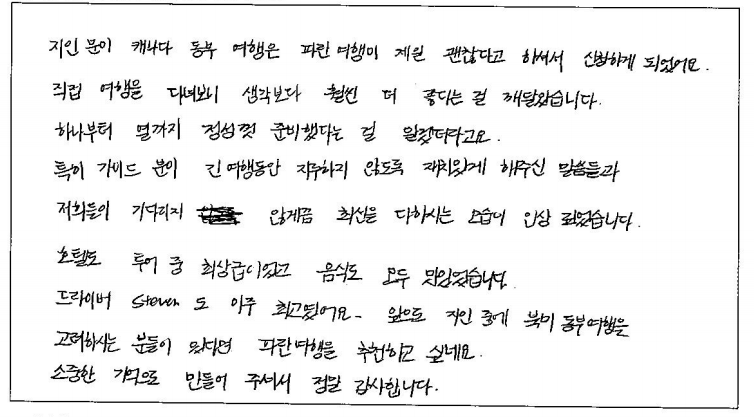 지인 분이 캐나다 동부 여행은 파란여행이 제일 괜찮다고 하셔서 신청하게 되었어요.
직접 여행을 다녀보니 생각보다 훨씬 더 좋다는 걸 깨달았습니다.
하나부터 열까지 정성껏 준비했다는 걸 알겠더라고요.
특히 가이드 분이 긴 여행동안 지루하지 않도록 재치있게 해주신 말씀들과
저희들의 기다리지 않게끔 최선을 다하시는 모습이 인상 깊었습니다.
호텔도 투어 중 최상급이었고 음식도 모두 맛있었습니다.
드라이버 Steven 도 아주 최고였어요. 앞으로 지인 중에 북미 동부여행을
고려하시는 분들이 있다면 파란여행을 추천하고 싶네요.
소중한 기억으로 만들어 주셔서 정말 감사합니다.